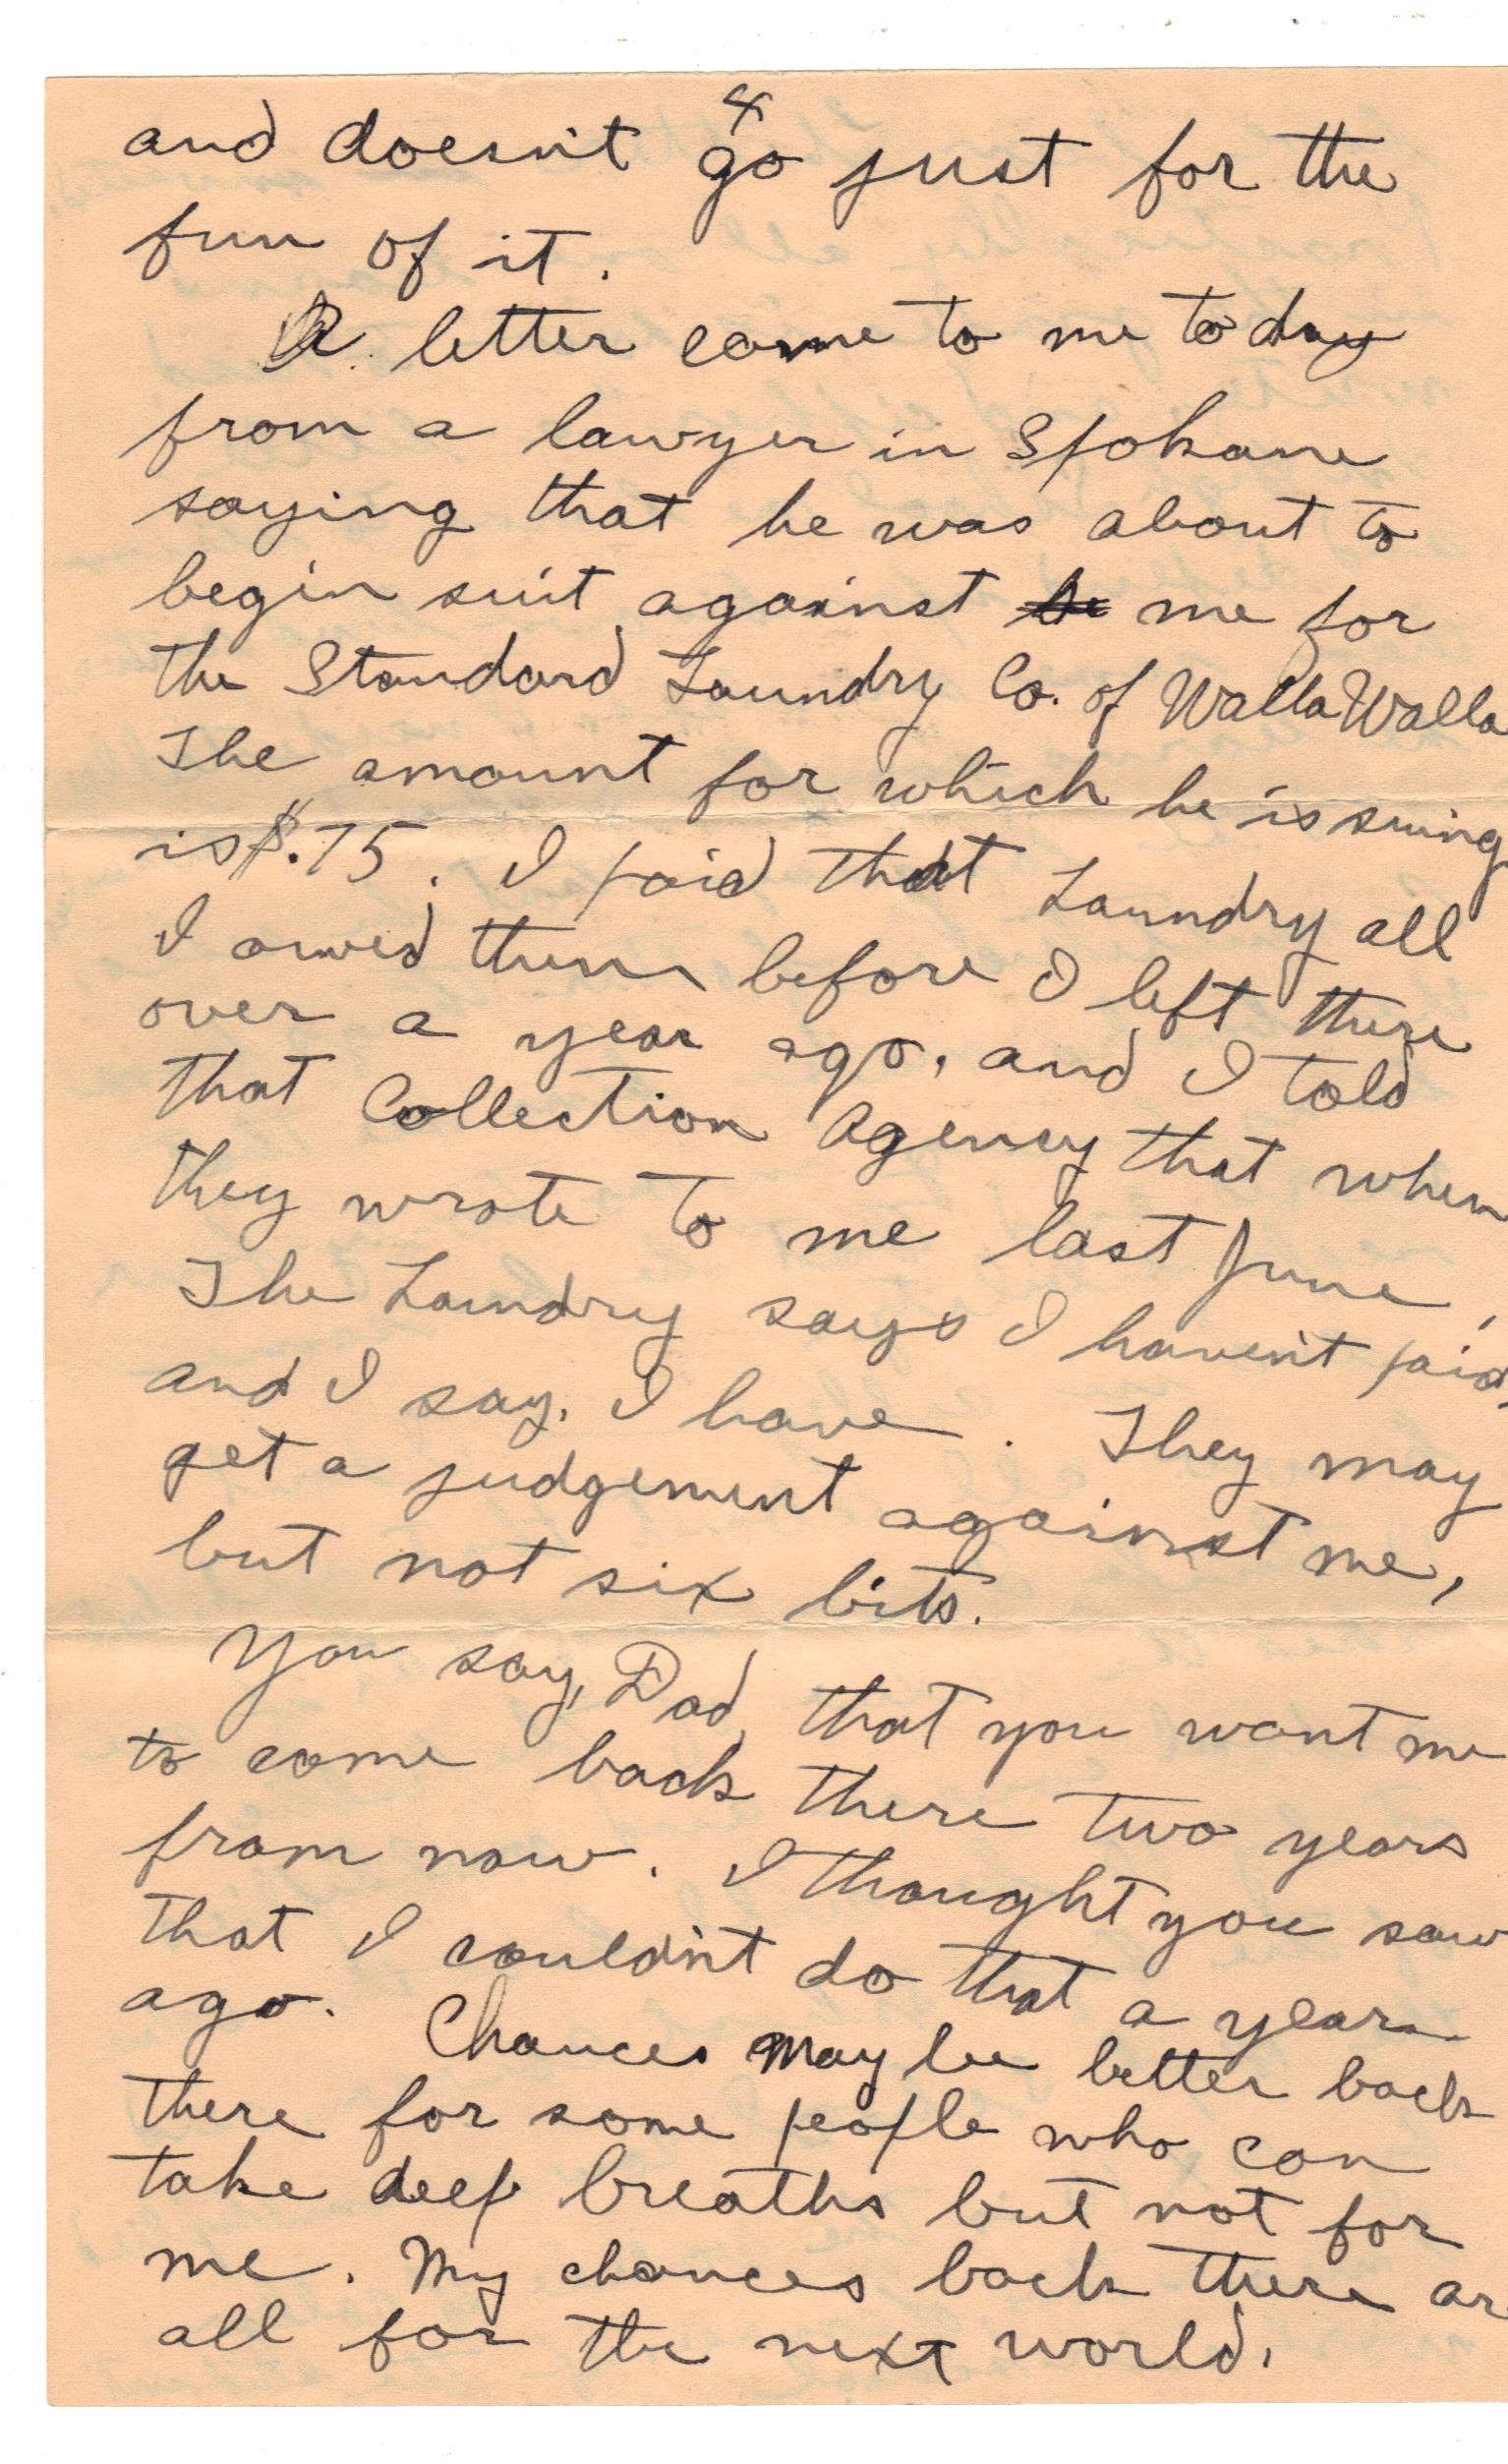 4
and doesn't go just for the
fun of it.
A letter came to me today
from a lawyer in Spokane
saying that he was about to
begin suit against me for
the Standard Laundry Co. of Walla Walla
The amount for which he is suing
is $.75. I paid that Laundry all
I owed them before I left there
over a year ago, and I told
that Collection Agency that when
they wrote to me last June.
The Laundry says I haven't paid,
and I say, I have. They may
get a judgement against me,
but not six bits.
You say, Dad, that you want me
to come back there two years
from now. I thought you saw
that I couldn't do that a year
ago. Chances may be better back
there for some people who can
take deep breaths but not for
me. My chances back there ar
all for the next world.